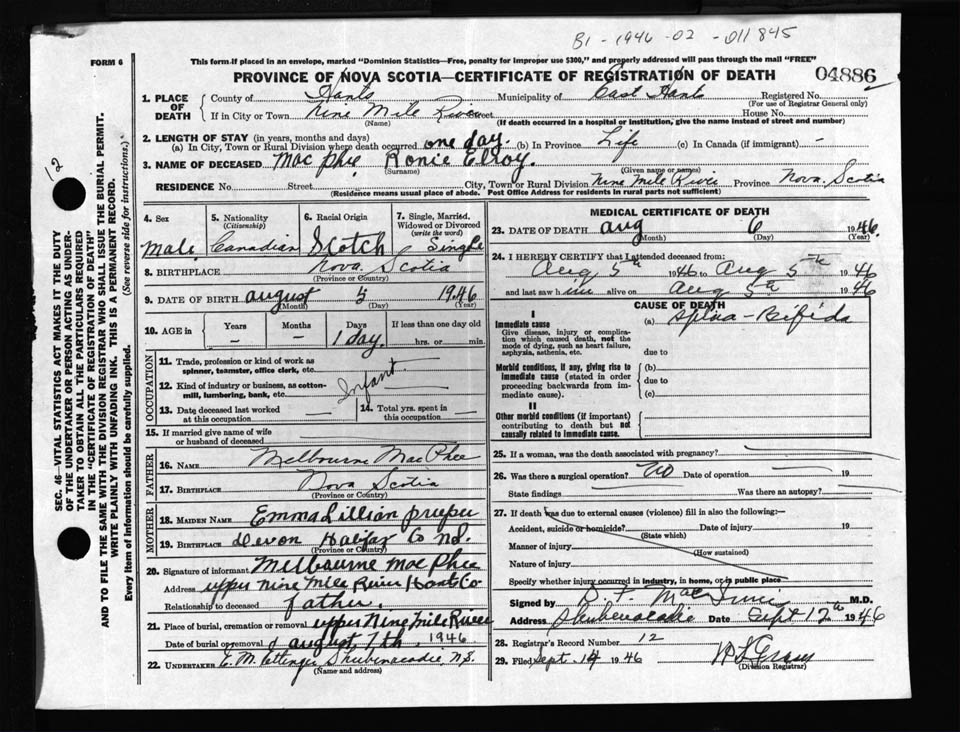 B1 - 1946 - 02 - 011845
FORM 6
This form if placed in an envelope, marked "Dominion Statistics—Free, penalty for improper use $300," and properly addressed will pass through the mail "FREE"
PROVINCE OF NOVA SCOTIA—CERTIFICATE OF REGISTRATION OF DEATH
04886
12
SEC. 46—VITAL STATISTICS ACT MAKES IT THE DUTY
OF THE UNDERTAKER OR PERSON ACTING AS UNDER-
TAKER TO OBTAIN ALL THE PARTICULARS REQUIRED
IN THE "CERTIFICATE OF REGISTRATION OF DEATH"
AND TO FILE THE SAME WITH THE DIVISION REGISTRAR WHO SHALL ISSUE THE BURIAL PERMIT.
WRITE PLAINLY WITH UNFADING INK. THIS IS A PERMANENT RECORD.
Every item of information should be carefully supplied. (See reverse side for instructions.)
1. PLACE OF DEATH
County of Hants Municipality of East Hants Registered No.
(For use of Registrar General only)
If in City or Town Nine Mile River Street House No.
(Name) (If death occurred in a hospital or institution, give the name instead of street and number)
2. LENGTH OF STAY (in years, months and days)
(a) In City, Town or Rural Division where death occurred one day. (b) In Province Life (c) In Canada (if immigrant) -
3. NAME OF DECEASED Mac Phie Ronie Elroy.
(Surname) (Given name or names)
RESIDENCE No. Street City, Town or Rural Division Nine Mile River Province Nova Scotia
(Residence means usual place of abode. Post Office Address for residents in rural parts not sufficient)
4. Sex Male
5. Nationality (Citizenship) Canadian
6. Racial Origin Scotch
7. Single, Married, Widowed or Divorced (write the word) Single
8. BIRTHPLACE Nova Scotia
(Province or Country)
9. DATE OF BIRTH august 5 1946
(Month) (Day) (Year)
10. AGE in Years Months Days If less than one day old
- - 1 day. hrs. or min.
OCCUPATION
11. Trade, profession or kind of work as spinner, teamster, office clerk, etc.
12. Kind of industry or business, as cotton-mill, lumbering, bank, etc.
Infant.
13. Date deceased last worked at this occupation
14. Total yrs. spent in this occupation
15. If married give name of wife or husband of deceased
FATHER
16. NAME Melbourne MacPhee
17. BIRTHPLACE Nova Scotia
(Province or Country)
MOTHER
18. MAIDEN NAME Emma Lillian
19. BIRTHPLACE Devon Halifax Co NS.
(Province or Country)
20. Signature of informant Melbourne Mac Phee
Address upper Nine Mile River Hants Co
Relationship to deceased father.
21. Place of burial, cremation or removal upper Nine Mile River
Date of burial or removal august 7th 1946
22. UNDERTAKER E. M. Ettinger Shubenacadie N.S.
(Name and address)
MEDICAL CERTIFICATE OF DEATH
23. DATE OF DEATH Aug 6 1946.
(Month) (Day) (Year)
24. I HEREBY CERTIFY that I attended deceased from:
Aug 5th 1946 to Aug 5th 1946
and last saw him alive on Aug 5th 1946
CAUSE OF DEATH
I
Immediate cause (a) Spina-Bifida
Give disease, injury or complication which caused death, not the mode of dying, such as heart failure, asphyxia, asthenia, etc.
due to
Morbid conditions, if any, giving rise to immediate cause (stated in order proceeding backwards from immediate cause).
(b)
due to
(c)
II
Other morbid conditions (if important) contributing to death but not causally related to immediate cause.
25. If a woman, was the death associated with pregnancy?
26. Was there a surgical operation? No Date of operation 19
State findings Was there an autopsy?
27. If death was due to external causes (violence) fill in also the following:—
Accident, suicide or homicide? Date of injury 19
(State which)
Manner of injury
(How sustained)
Nature of injury
Specify whether injury occurred in industry, in home, or in public place
Signed by D. F. M.D.
Address Shubenacadie Date Sept 12th 1946
28. Registrar's Record Number 12
29. Filed Sept. 14 1946
(Division Registrar)